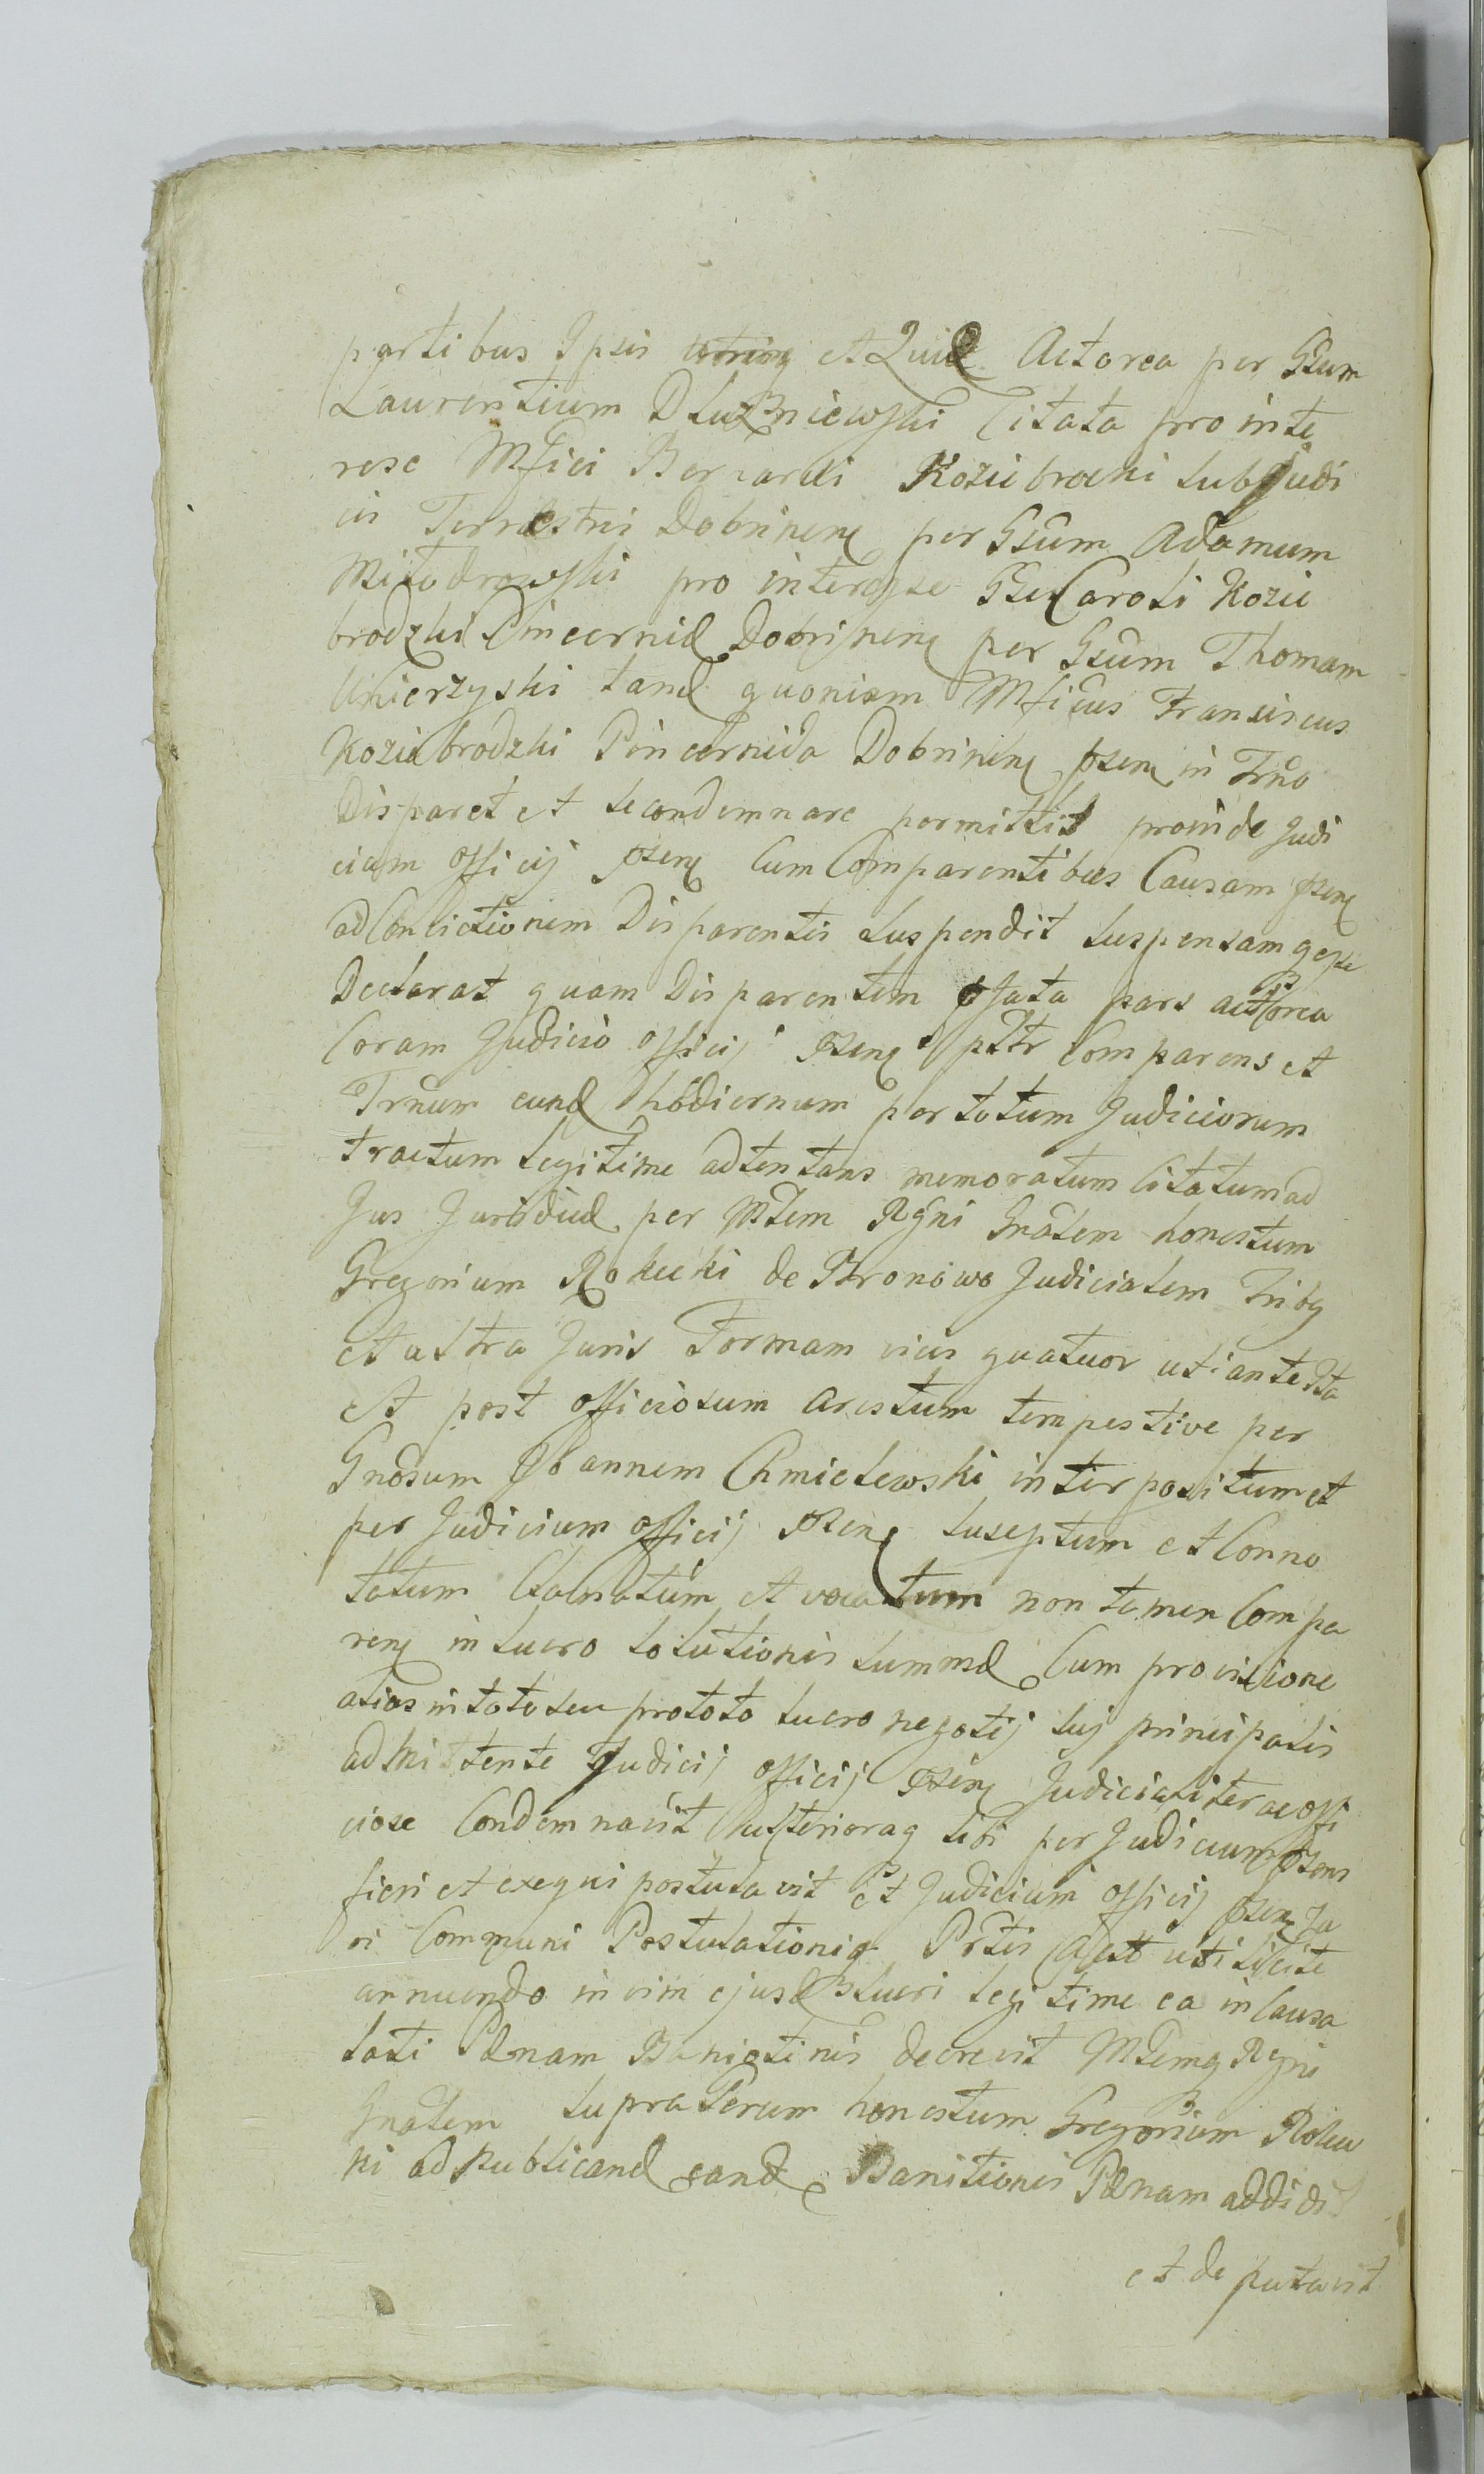 partibus Ipsis utrinq et Quid Actorea per Gsum
Laurentium Dłużniewski Citata pro inte
rese Mfici Bernardi Koziebrocki Subjudi
cis Terrestris Dobrinens per Gsum Adamum
Miłodrowski pro interesse Gsi Caroli Kozie
brodzki Pincernid Dobrijnens per Gsum Thomam
Umierzyski tand quoniam Mficus Franciscus
Koziebrodzki Pincernida Dobrinens psens in Trno
Disparet et se condemnare permittit proinde Judi
cium Officij psens Cum Comparentibus Causam psens
ad Convictionem Disparentis suspendit suspensam q esse
Declarat quam Disparentem pfata pars actorea
Coram Judicio officij psens pttr Comparens et
Trnum eund hodiernum per totum Judiciorum
tractum legitime adtentans memoratum Citatum ad
Jus Juridicd per Mtem Rgni Gnalem honestum
Gregorium Rokicki de Bronowo Judicialem Tribq
et ultra Juris Formam vicis quatuor uti ante Ita
et post officiosum arestum tempestive per
Gnosum Joannem Chmielewski interpositum et
per Judicium officij psens susceptum et Conno
tatum Clamatum et vocatum non tamen Compa
rens in lucro solutionis summd Cum provisione
alias in toto seu pro toto lucro negotij sui principalis
admittente Judicij officij psens Judicialiter ac offi
ciose Condemnavit ulteriora q sibi per Judicium psens
fieri et exequi postulavit Et Judicium officij psens Ju
ri Communi Postulationiq Prtis Act uti licite
annuendo in vim ejusd lucri legitime ea in Causa
lati Pœnam Banitionis decrevit Mtemq Rgni
Gnalem supra Scrum honestum Gregorium Rokic
ki ad publicand eand Banitionis Pœnam addidit
et deputavit